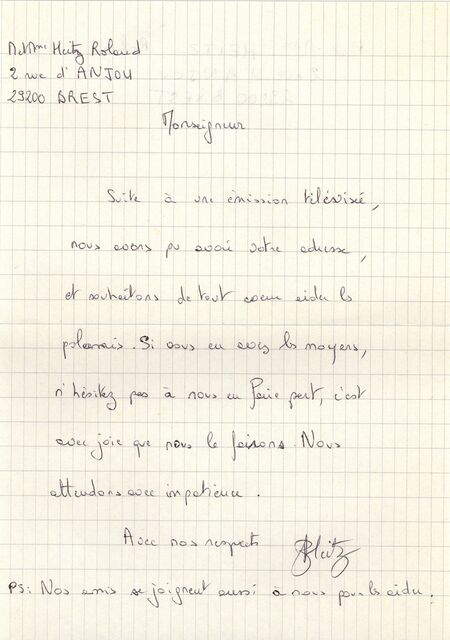 M. Mme Heitz Roland
2 rue d'ANJOU
29200 BREST
Monseigneur
Suite à une émission télévisé,
nous avons pu avoir votre adresse,
et souhaitons de tout coeur aider les
polonais. Si vous en avez les moyens,
n'hésitez pas à nous en faire part, c'est
avec joie que nous le faisons. Nous
attendons avec impatience.
Avec nos respects
RHeitz
PS: Nos amis se joignent aussi à nous pour les aider.